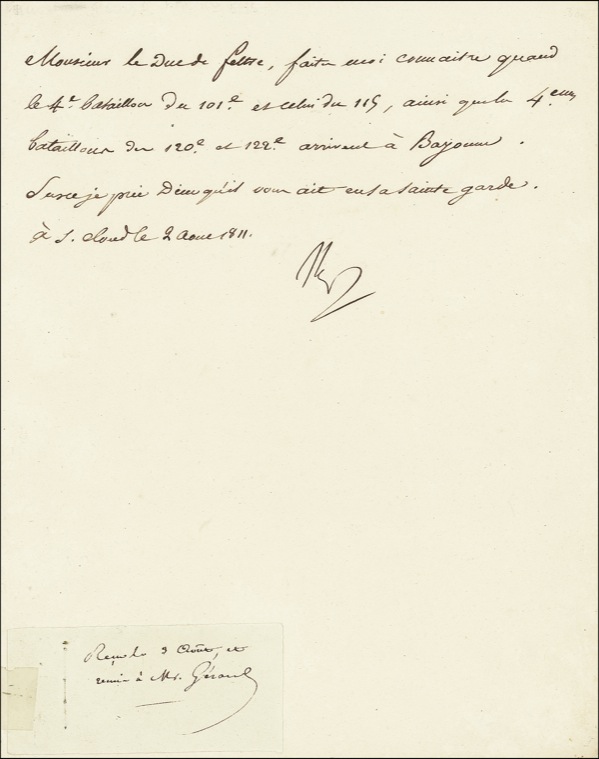 Monsieur le Duc de feltre, faites moi connaitre quand
le 4.e bataillon du 101.e et celui du 115, ainsi que les 4.emes
bataillons des 120.e et 122.e arrivent à Bayonne.
Sur ce je prie Dieu qu'il vous ait en sa sainte garde.
à S. Cloud le 2 Aout 1811.
Np
Reçu le 3 Août, et
remis à Mr. Gérard